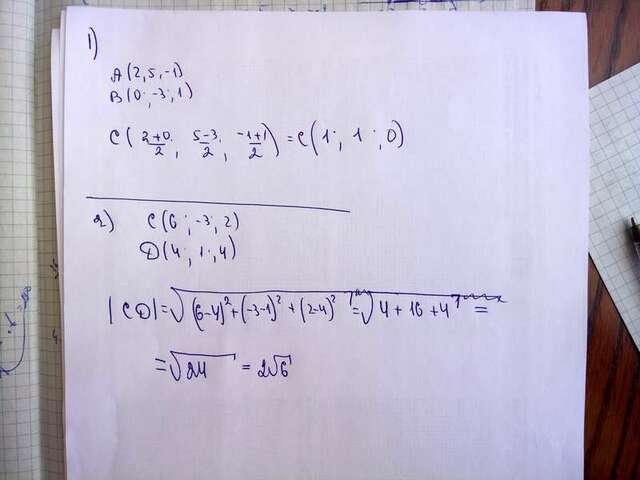 1)
A(2,5,-1)
B(0;-3;1)
C( 2+0/2 ; 5-3/2 ; -1+1/2 ) = C(1 ; 1 ; 0)
2) C(6 ; -3 ; 2)
D(4 ; 1 ; 4)
|CD| = √(6-4)² + (-3-1)² + (2-4)² = √4 + 16 + 4 =
= √24 = 2√6